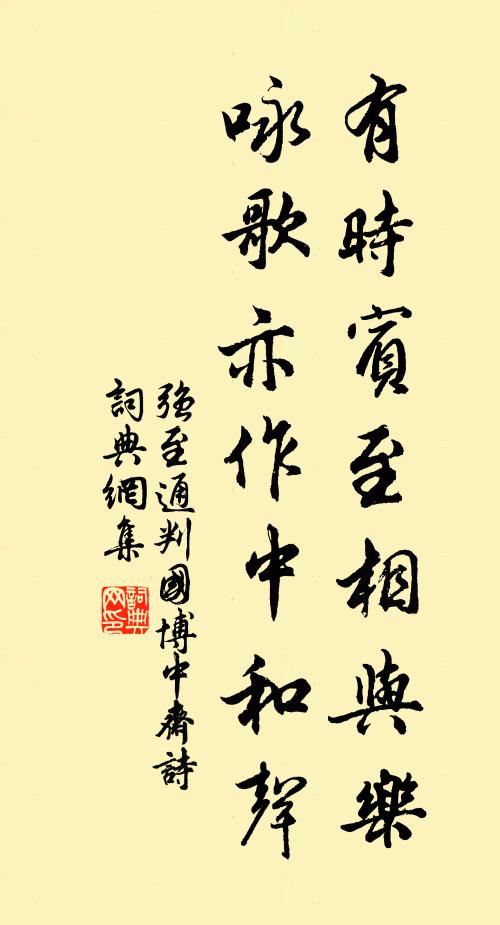 有時賓至相與樂
咏歌亦作中和聲
強至通判國博中齋詩
詞典網集
詞典网印